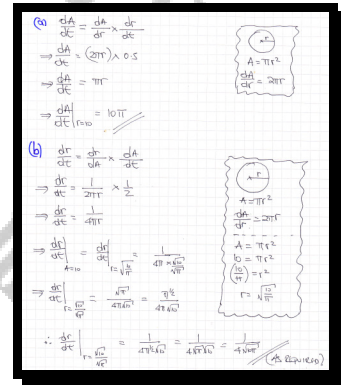 (a) dA/dt = dA/dr × dr/dt
⇒ dA/dt = (2πr) × 0.5
⇒ dA/dt = πr
⇒ dA/dt |r=10 = 10π
r
A = πr²
dA/dr = 2πr
(b) dr/dt = dr/dA × dA/dt
⇒ dr/dt = 1/2πr × 1/2
⇒ dr/dt = 1/4πr
⇒ dr/dt |A=10 = dr/dt |r=√(10/π) = 1/(4π × √10/√π)
⇒ dr/dt |r=√10/√π = √π/4π√10 = π^½/4π√10
∴ dr/dt |r=√10/√π = 1/4π^½√10 = 1/4√π√10 = 1/4√10π
(AS REQUIRED)
r
A = πr²
dA/dr = 2πr
A = πr²
10 = πr²
(10/π) = r²
r = √(10/π)